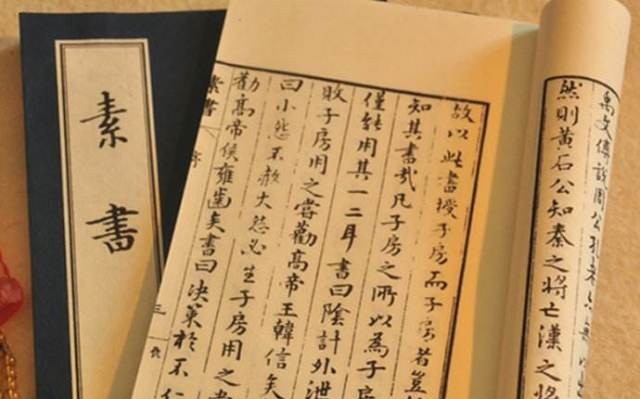 素書
禹文傅說周公孔老亦無以出
然則黃石公知秦之將亡漢之將
故以此書授子房而子房者豈
知其書哉凡子房之所以為子房
僅能用其一二耳書曰陰計外泄
敗子房用之嘗勸高帝王韓信矣
曰小怨不赦大怨必生子房用之
勸高帝侯雍齒矣書曰決策於不仁
素書 序 三